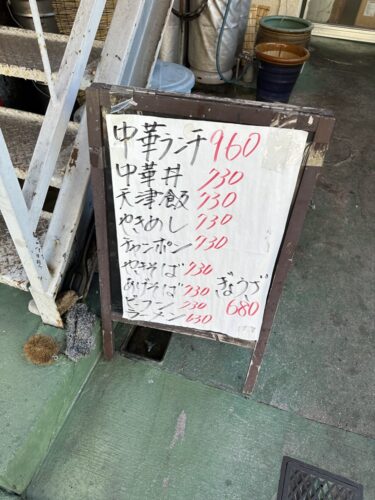 中華ランチ 960
中華丼 730
天津飯 730
やきめし 730
チャンポン 730
やきそば 730
あげそば 730 ぎょうざ
ビーフン 730 680
ラーメン 630